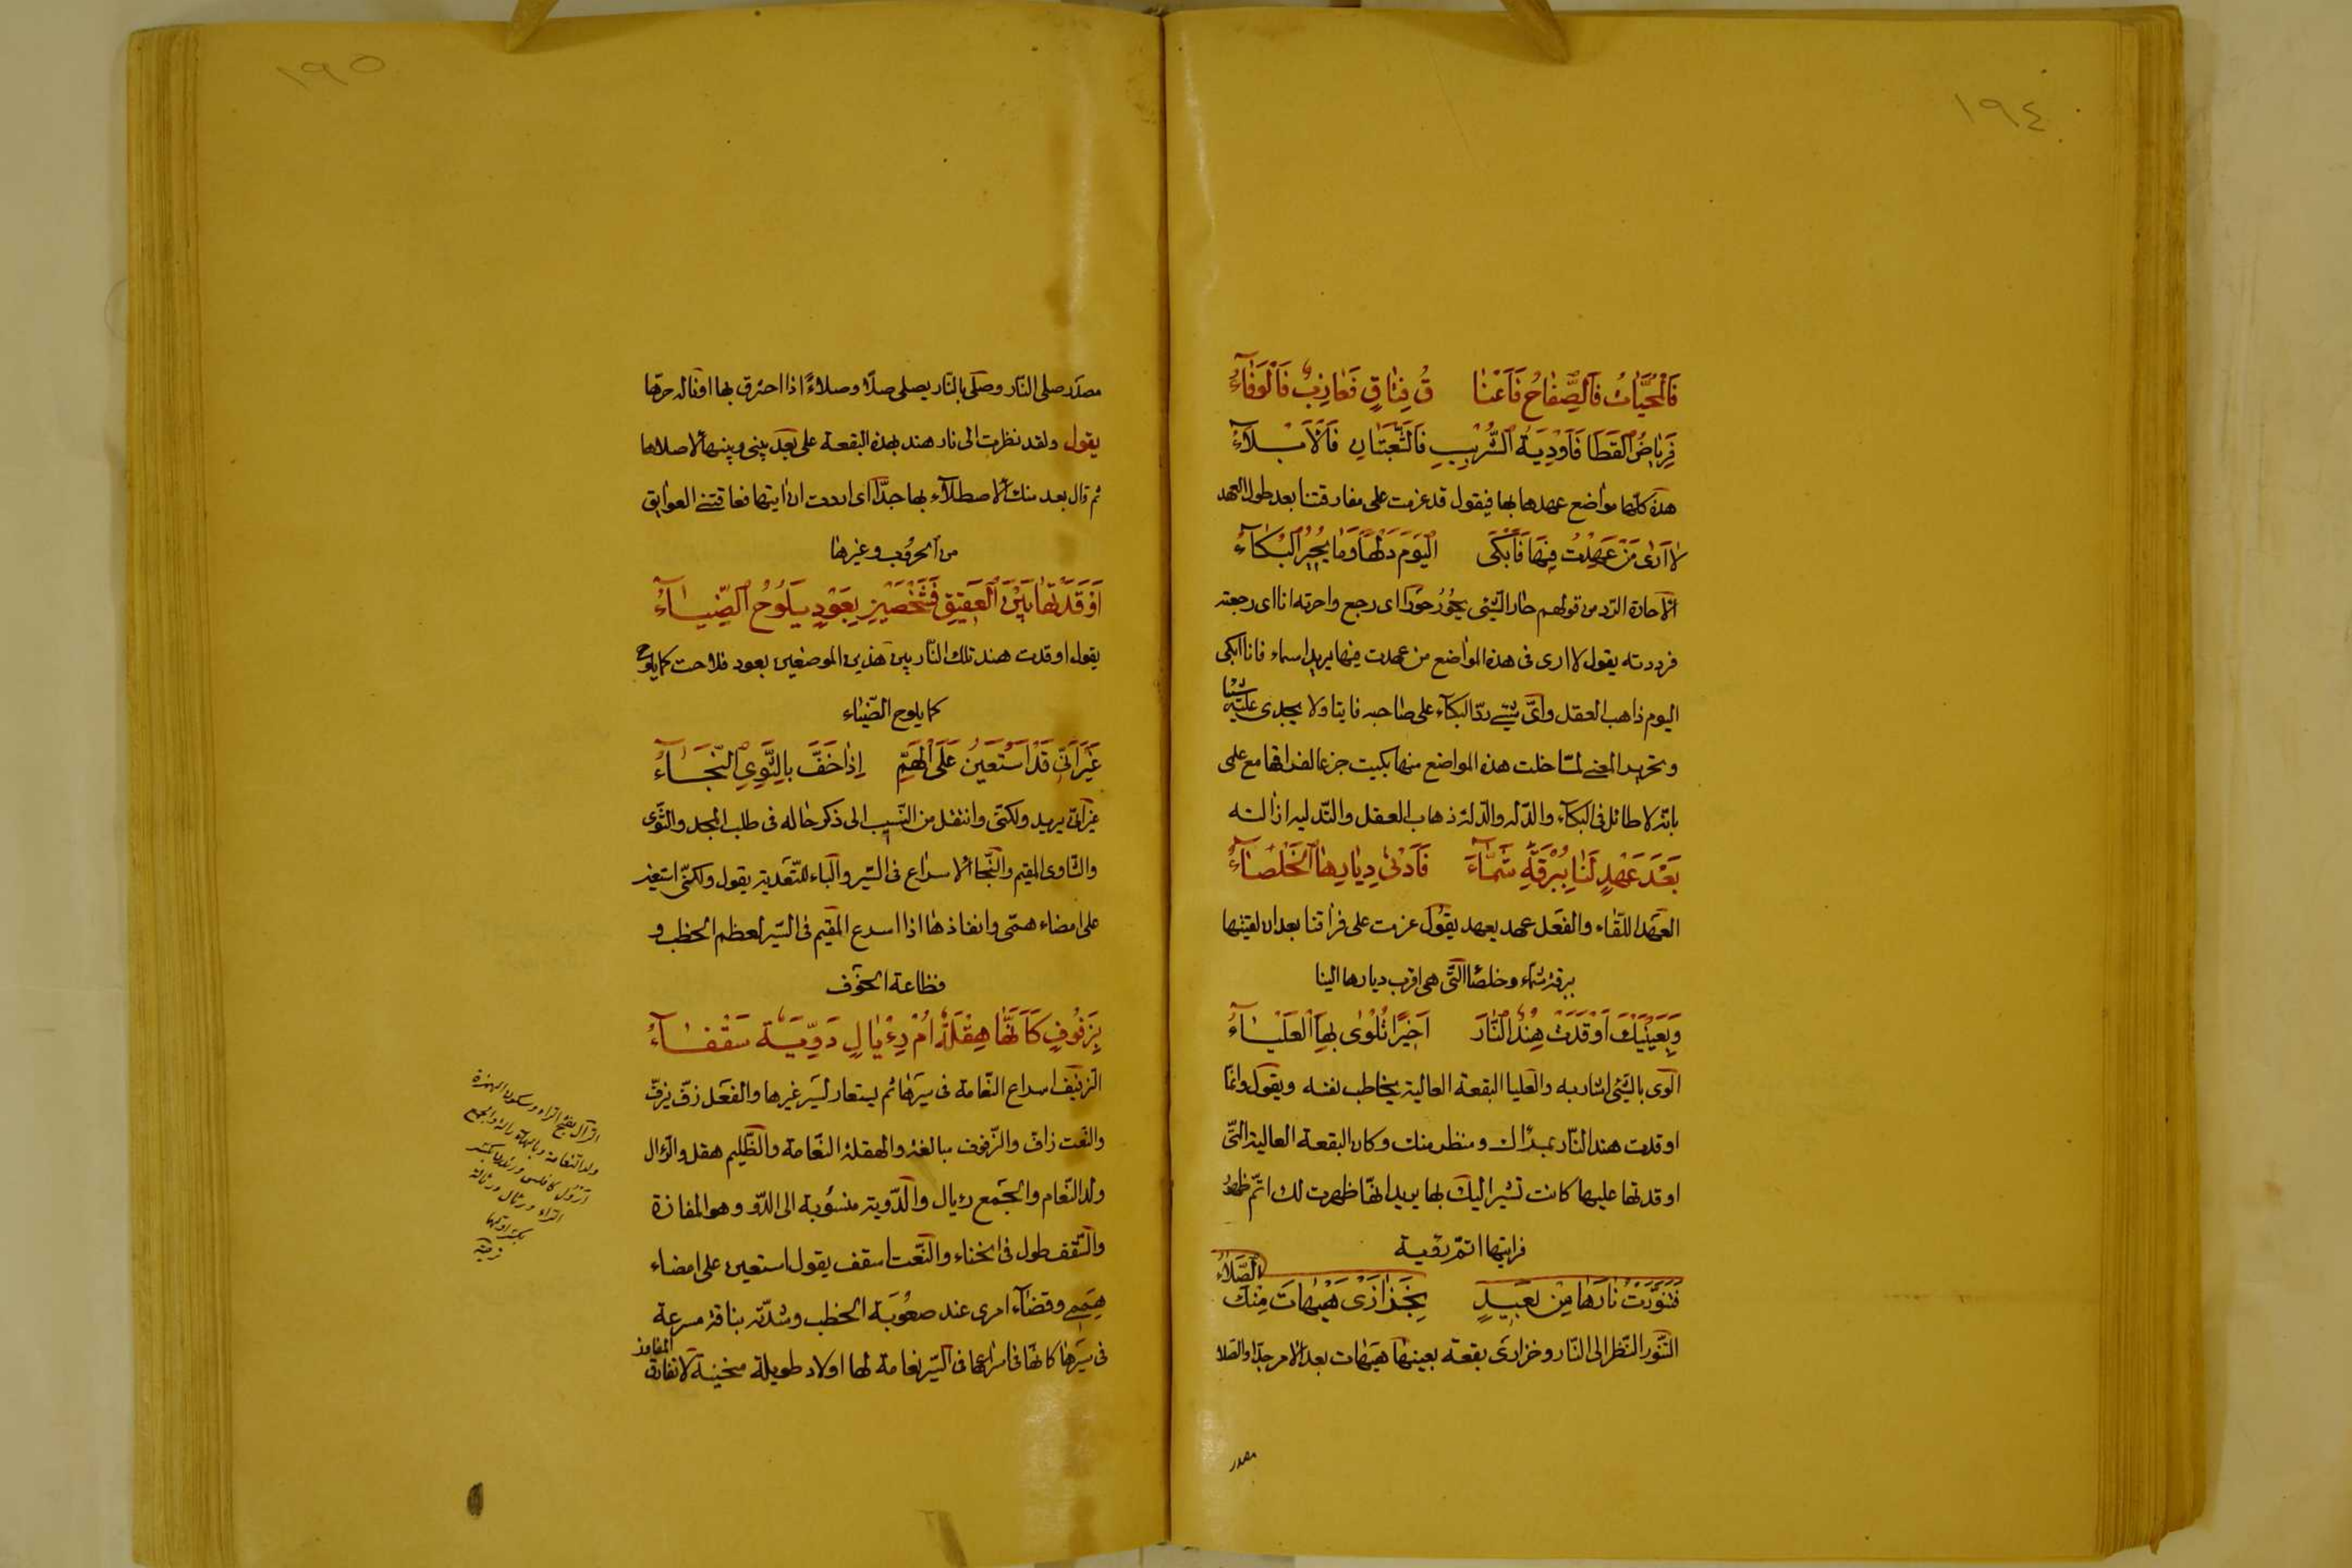 ١٩٤
فَالْمُحَيَّاتُ فَالصِّفَاحُ فَاَعْنَا قُ فِتَاقٍ فَعَاذِبٌ فَالْوَفَاءُ
فَرِيَاضُ الْقَطَا فَاَوْدِيَةُ الشُّرْبُبِ فَالشُّعْبَتَانِ فَالْاَبْلَاءُ
هذه كلّها مواضع عهدها بها فيقول قد عزمت على مفارقتنا بعد طول العهد
لا اَرٰى مَنْ عَهِدْتُ فِيهَا فَاَبْكِى الْيَوْمَ دَلْهًا وَمَا يُحِيرُ الْبُكَاءُ
الاحارة الردّ من قولهم حار الشّئ يحُورُ حَورًا اى رجع واحرته انا اى رجعته
فرددته يقول لا ارى فى هذه المواضع من عهدت فيها يريد اسماء فانا ابكى
اليوم ذاهب العقل واىّ شئ ردّ البكآء على صاحبه فايتا ولا يجدى عليه شيئا
وتحرير المعنى لمّا خلت هذه المواضع منها بكيت جزعا لفراقها مع علمى
بانّه لا طائل فى البكآء والدّله والدّلهة ذهاب العقل والتّدليه ازالته
بَعْدَ عَهْدٍ لَنَا بِبُرْقَةِ شَمَّاءَ فَاَدْنٰى دِيَارِهَا الْخَلْصَاءُ
العَهد اللّقاء والفعل عهد يعهد يقول عزمت على فراقنا بعد ان لقيتها
ببرقة شماء وخلصا الّتى هى اقرب ديارها الينا
وَبِعَيْنَيْكَ اَوْقَدَتْ هِنْدٌ النَّارَ اَخِيرًا تُلْوٰى بِهَا الْعَلْيَاءُ
الوى بالشّئ اشار به والعليا البقعة العالية يخاطب نفسه ويقول وانّما
اوقدت هند النّار بمرآك ومنظر منك وكان البقعة العالية الّتى
اوقدتها عليها كانت تشير اليك بها يريد انّها ظهرت لك اتمّ ظهور
فرايتها اتمّ رؤية
فَتَنَوَّرْتُ نَارَهَا مِنْ بَعِيدٍ بِخَزَازٰى هَيْهَاتَ مِنْكَ الصَّلَاءُ
التّنور النّظر الى النّار وخزازى بقعة بعينها هيهات بعد الامر جدّا والصّلا
مصدر
١٩٥
مصدر صلى النّار وصلى بالنّار يصلى صلًا وصلاءً اذا احترق بها او ناله حرّها
يقول ولقد نظرت الى نار هند بهذه البقعة على بعد بينى وبينها لاصلاها
ثم قال بعد منك الاصطلاء بها جدّا اى اردت ان اتيها فعاقتنى العوايق
من الحروب وغيرها
اَوْقَدَتْهَا بَيْنَ الْعَقِيقِ فَشَخْصَيْنِ بِعَوْدٍ يَلُوحُ الضِّيَاءُ
يقول اوقدت هند تلك النّار بين هذين الموضعين بعود فلاحت كما يلوح
كما يلوح الضّياء
غَيْرَ اَنِّى قَدْ اَسْتَعِينُ عَلَى الْهَمِّ اِذَا خَفَّ بِالثَّوِىِّ النَّجَاءُ
غير انّى يريد ولكنّى وانتقل من النّسيب الى ذكر حاله فى طلب المجد والثّوى
والثّاوى المقيم والنّجا الاسراع فى السّير والباء للتّعدية يقول ولكنّى استعين
على امضاء همّى وانفاذها اذا اسرع المقيم فى السّير لعظم الخطب و
فظاعة الخوف
بِزَفُوفٍ كَاَنَّهَا هِقْلَةٌ اُمُّ رِئَالٍ دَوِّيَّةٌ سَقْفَاءُ
الزّفيف اسراع النّعامة فى سيرها ثم يستعار لسير غيرها والفعل زفّ يزفّ
والنّعت زافّ والزّفوف مبالغة والهقلة النّعامة والظّليم هقل والرّأل
ولد النّعام والجمع رئال والدّوية منسوبة الى الدّو وهو المفازة
والسّقف طول فى انحناء والنّعت اسقف يقول استعين على امضاء
همّى وقضاء امرى عند صعوبة الخطب وشدّته بناقة مسرعة
فى سيرها كانّها فى اسراعها فى السّير نعامة لها اولاد طويلة منحنية لا تفارق المفاوز
الرأل بفتح الراء وسكون الهمزة
ولد النعامة